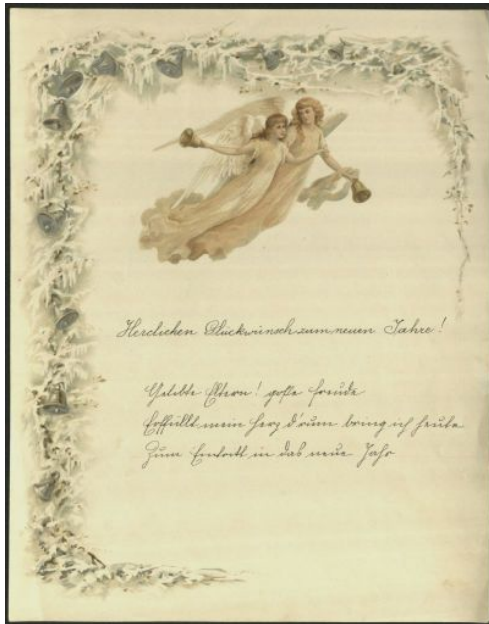 Herclichen Glückwünsch zum neuen Jahre!
Gelibte Eltern! goße Freude
Erffüllt mein Herz d'rum bring ich heute
Zum Eintritt in das neue Jahr